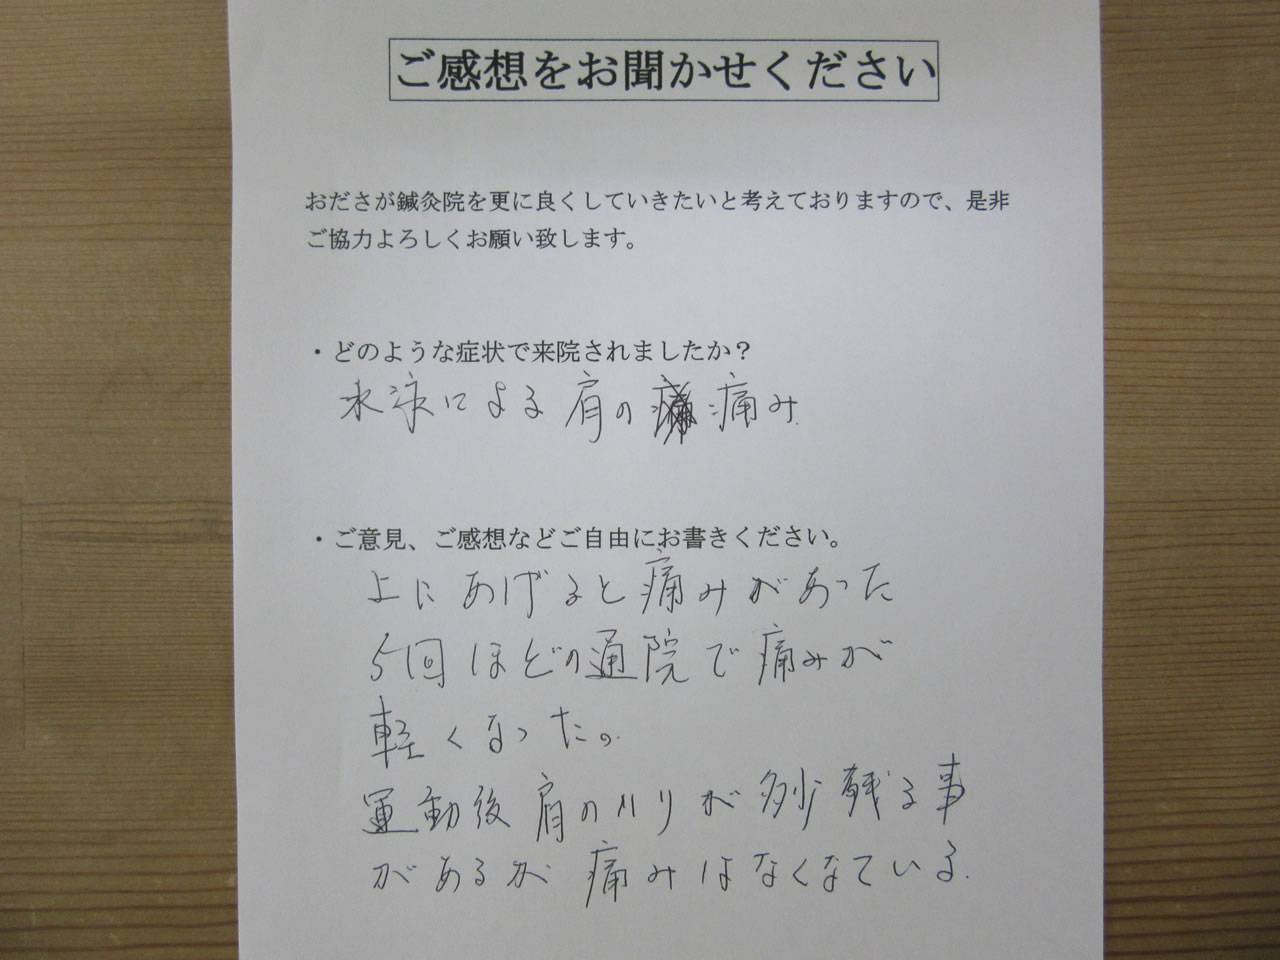 ご感想をお聞かせください
おださが鍼灸院を更に良くしていきたいと考えておりますので、是非
ご協力よろしくお願い致します。
・どのような症状で来院されましたか？
水泳による肩の痛み
・ご意見、ご感想などご自由にお書きください。
上にあげると痛みがあった
5回ほどの通院で痛みが
軽くなった。
運動後肩のハリが多少残る事
があるが痛みはなくなている.